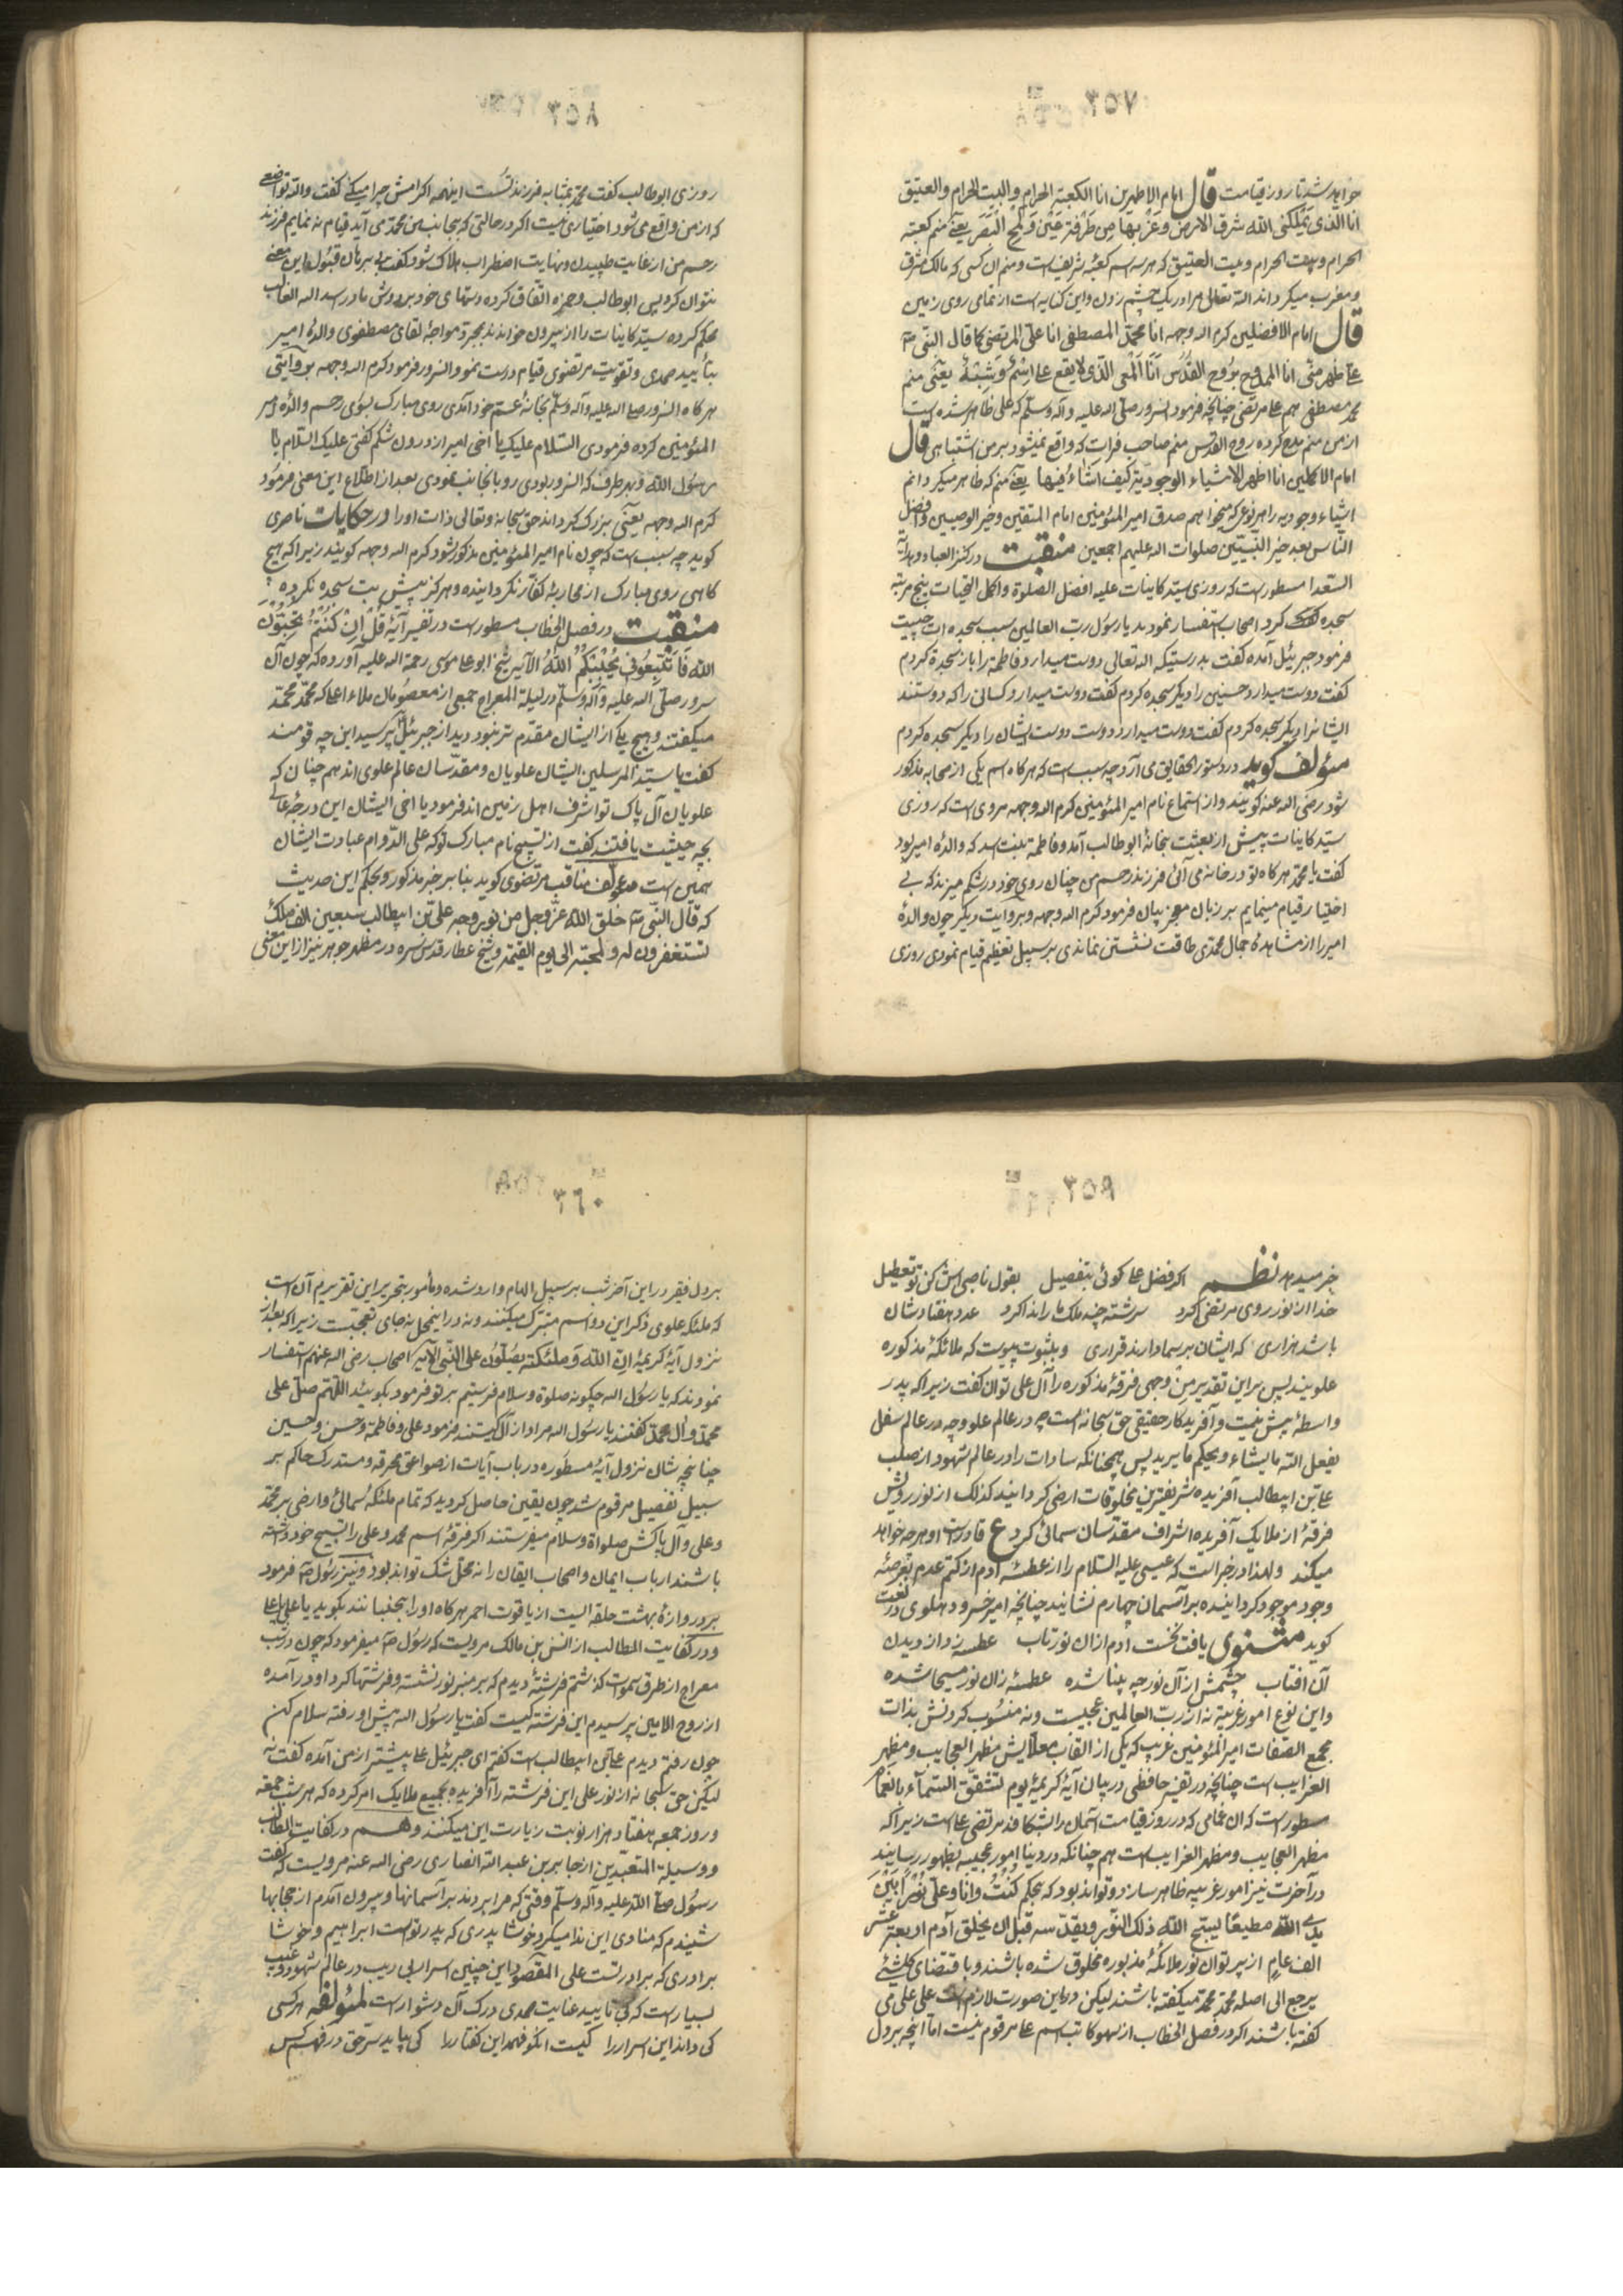 خواهد شد تا روز قیامت قال امام الاطهرین انا الکعبة الحرام والبیت الحرام والعتیق
انا الذی یملکنی الله شرق الارض وغربها من طرفة عین ولمح البصر یعنی منم کعبه
الحرام وبیت الحرام وبیت العتیق که هر سه اسم کعبه شریف است ومنم آن کسی که مالک مشرق
ومغرب میکرداند الله تعالی مرا در یک چشم زدن واین کنایه است از تمامی روی زمین
قال امام الافضلین کرم الله وجهه انا محمد المصطفی انا علی المرتضی کما قال النبی
علی ظهر منی انا الممدوح بروح القدس انا المعنی الذی لا یقع علی اسم وشبه یعنی منم
محمد مصطفی هم علی مرتضی چنانچه فرمود آنسرور صلی الله علیه وآله وسلم که علی ظاهر شده است
از من منم مدح کرده روح القدس منم صاحب که واقع نمیشود بر من اشتباهی قال
امام الاکملین انا اظهر الاشیاء الوجودیة کیف اشاء فیها یعنی منم که ظاهر میکردانم
اشیاء وجودیه را بهر نوعی که میخواهم صدق امیر المؤمنین امام المتقین وخیر الوصیین وافضل
الناس بعد خیر النبیین صلوات الله علیهم اجمعین منقبت در کنز العباد وهدایة
السعدا مسطور است که روزی سید کاینات علیه افضل الصلوة واکمل التحیات پنج مرتبه
سجده کرد اصحاب استفسار نمودند یا رسول رب العالمین سبب سجده ات چیست
فرمود جبرئیل آمده کفت بدرستیکه الله تعالی دوست میدارد فاطمه را باز سجده کردم
کفت دوست میدارد حسنین را دیکر سجده کردم کفت دوست میدارد کسانی را که دوستند
ایشانرا دیکر سجده کردم کفت دوست میدارد دوست دوست ایشان را دیکر سجده کردم
مؤلف کوید در دستور الحقایق می آرد چه سبب است که هر کاه اسم یکی از صحابه مذکور
شود رضی الله عنه کویند واز استماع نام امیر المؤمنین کرم الله وجهه مروی است که روزی
سید کاینات پیش از بعثت بخانهٔ ابوطالب آمد وفاطمه بنت اسد که والدهٔ امیر بود
کفت یا محمد هر کاه تو در خانه می آئی فرزند رحم من چنان روی خود در شکم میزند که بی
اختیار قیام مینمایم بر زبان معجز بیان فرمود کرم الله وجهه وبروایت دیکر چون والدهٔ
امیر را از مشاهدهٔ جمال محمدی طاقت نشستن نماندی بر سبیل تعظیم قیام نمودی روزی
روزی ابوطالب کفت محمد بمثابه فرزند تست اینهمه اکرامش چرا میکنی کفت والله تواضعی
که از من واقع می شود اختیاری نیست اکر در حالتی که بجانب من محمد می آید قیام نه نمایم فرزند
رحم من از غایت طپیدن ونهایت اضطراب هلاک شود کفت بی برهان قبول این معنی
نتوان کرد پس ابوطالب وحمزه اتفاق کرده دستهای خود بر دوش مادر اسد الله الغالب
محکم کرده سید کاینات را از بیرون خواندند بمجرد مواجهٔ لقای مصطفوی والدهٔ امیر
بتأیید صمدی وتقویت مرتضوی قیام درست نمود وآنسرور فرمود کرم الله وجهه بروایتی
هر کاه آنسرور صلی الله علیه وآله وسلم بخانهٔ عم خود آمدی روی مبارک بسوی رحم والدهٔ امیر
المؤمنین کرده فرمودی السلام علیک یا اخی امیر از درون شکم کفتی علیک السلام یا
رسول الله وبهر طرف که آنسرور بودی رو بآنجانب نمودی بعد از اطلاع این معنی فرمود
کرم الله وجهه یعنی بزرک کرداند حق سبحانه وتعالی ذات او را در حکایات ناصری
کوید چه سبب است که چون نام امیر المؤمنین مذکور شود کرم الله وجهه کویند زیرا که هیچ
کاهی روی مبارک از محاربهٔ کفار نکردانیده وهرکز پیش بت سجده نکرده
منقبت در فصل الخطاب مسطور است در تفسیر آیهٔ قل ان کنتم تحبون
الله فاتبعونی یحببکم الله الآیه شیخ ابو علی موسی رحمة الله علیه آورده که چون آن
سرور صلی الله علیه وآله وسلم در لیلة المعراج جمعی از معصومان ملاء اعلی که محمد محمد
میکفتند وهیچ یکی از ایشان مقدم تر نبود دید از جبرئیل پرسید این چه قومند
کفت یا سید المرسلین ایشان علویان ومقدسان عالم علوی اند هم چنان که
علویان آل پاک تو اشرف اهل زمین اند فرمود یا اخی ایشان این درجهٔ عالی
بچه حیثیت یافتند کفت از تسبیح نام مبارک تو که علی الدوام عبادت ایشان
همین است مؤلف مناقب مرتضوی کوید بنا بر خبر مذکور وبحکم این حدیث
که قال النبی خلق الله عز وجل من نور وجه علی بن ابیطالب سبعین الف ملک
تستغفرون له ولمحبه الی یوم القیمة وشیخ عطار قدس سره در مظهر جوهر نیز از این معنی
خبر میدهد نظم اکر فضل علی کوئی بتفصیل بقول ناصبی اش کن تو تعطیل
خدا از نور روی مرتضی کرد سرشته چند ملک ما را ندا کرد عدد هفتاد شان
باشد هزاری که ایشان بر سما دارند قراری وبثبوت پیوست که ملائکهٔ مذکوره
علویند پس بر این تقدیر من وجهی فرقهٔ مذکوره را آل علی توان کفت زیرا که پدر
واسطهٔ بیش نیست وآفریدکار حقیقی حق سبحانه است چه در عالم علو وچه در عالم سفل
یفعل الله ما یشاء ویحکم ما یرید پس همچنانکه سادات را در عالم شهود از صلب
علی بن ابیطالب آفریده شریفترین مخلوقات ارضی کردانید کذلک از نور رویش
فرقهٔ از ملایک آفریده اشراف مقدسان سمائی کرد ع قادر است او هر چه خواهد
میکند ولهذا در خبر است که عیسی علیه السلام را از عطسهٔ آدم از کتم عدم بعرصهٔ
وجود موجود کردانیده بر آسمان چهارم نشانید چنانچه امیر خسرو دهلوی در نعت
کوید مثنوی یافت نخست آدم از ان نور تاب عطسه زد از دیدن
آن افتاب چشمش از آن نور چه بینا شده عطسهٔ زان نور مسیحا شده
واین نوع امور غریبه نه از رب العالمین عجیبست ونه منسوب کردنش بذات
مجمع الصفات امیر المؤمنین غریب که یکی از القاب معلایش مظهر العجایب ومظهر
الغرایب است چنانچه در تفسیر حافظی در بیان آیهٔ کریمهٔ یوم تشقق السماء بالغمام
مسطور است که ان غمامی که در روز قیامت آسمان را بشکافد مرتضی علی است زیرا که
مظهر العجایب ومظهر الغرایب است هم چنانکه در دنیا امور عجیبه بظهور رسانید
در آخرت نیز امور غریبه ظاهر سازد وتواند بود که بحکم کنت وانا وعلی نورا بین
یدی الله مطیعا یسبح الله ذلک النور ویقدسه قبل ان یخلق آدم اربعة عشر
الف عام از پرتو ان نور ملائکهٔ مذبوره مخلوق شده باشند وباقتضای کل شیئ
یرجع الی اصله محمد محمد میکفته باشند لیکن در این صورت لازم است علی علی می
کفته باشند اکر در فصل الخطاب از سهو کاتب اسم علی مرقوم نیست اما آنچه بر دل
بر دل فقیر در این آخر شب بر سبیل الهام وارد شده ومأمور بتحریر این تقریرم آن است
که ملئکه علوی ذکر این دو اسم متبرک میکنند ونه در اینمحل نه جای تعجبست زیرا که بعد از
نزول آیهٔ کریمهٔ ان الله وملئکته یصلون علی النبی الآیه اصحاب رضی الله عنهم استفسار
نمودند که یا رسول الله چکونه صلوة وسلام فرستیم بر تو فرمود بکوئید اللهم صل علی
محمد وآل محمد کفتند یا رسول الله مراد از آل کیستند فرمود علی وفاطمه وحسن وحسین
چنانچه شان نزول آیهٔ مسطوره در باب آیات از صواعق محرقه ومستدرک حاکم بر
سبیل تفصیل مرقوم شد چون یقین حاصل کردید که تمام ملئکهٔ سمائی وارضی بر محمد
وعلی وآل پاکش صلواة وسلام میفرستند اکر فرقهٔ اسم محمد وعلی را تسبیح خود داشته
باشند ارباب ایمان واصحاب ایقان را نه محل شک تواند بود ونیز رسول فرمود
بر دروازهٔ بهشت حلقه ایست از یاقوت احمر هر کاه او را بجنبانند بکوید یا علی یا علی
ودر کفایت المطالب از انس بن مالک مرویست که رسول میفرمود که چون در شب
معراج از طرق سموات کذشتم فرشتهٔ دیدم که بر منبر نور نشسته وفرشتها کرد او در آمده
از روح الامین پرسیدم این فرشته کیست کفت یا رسول الله پیش او رفته سلام کن
چون رفتم دیدم علی بن ابیطالب است کفتم ای جبرئیل علی پیشتر از من آمده کفت نه
لیکن حق سبحانه از نور علی این فرشته را آفریده بجمیع ملایک امر کرده که هر شب جمعه
وروز جمعه هفتاد هزار نوبت زیارت این میکنند وهم در کفایت الطالب
ووسیلة المتعبدین از جابر بن عبد الله انصاری رضی الله عنه مرویست که کفت
رسول صلی الله علیه وآله وسلم وقتی که مرا بردند بر آسمانها وبیرون آمدم از حجابها
شنیدم که منادی این ندا میکرد خوشا پدری که پدر تو است ابراهیم وخوشا
برادری که برادر تست علی المقصود این چنین اسرار بی ریب در عالم شهود وغیب
بسیار است که بی تایید عنایت صمدی درک آن دشوار است لمؤلفه هر کسی
کی داند این اسرار را کیست انکو فهمد این کفتار را کی بیاید سر حق در فهم کس